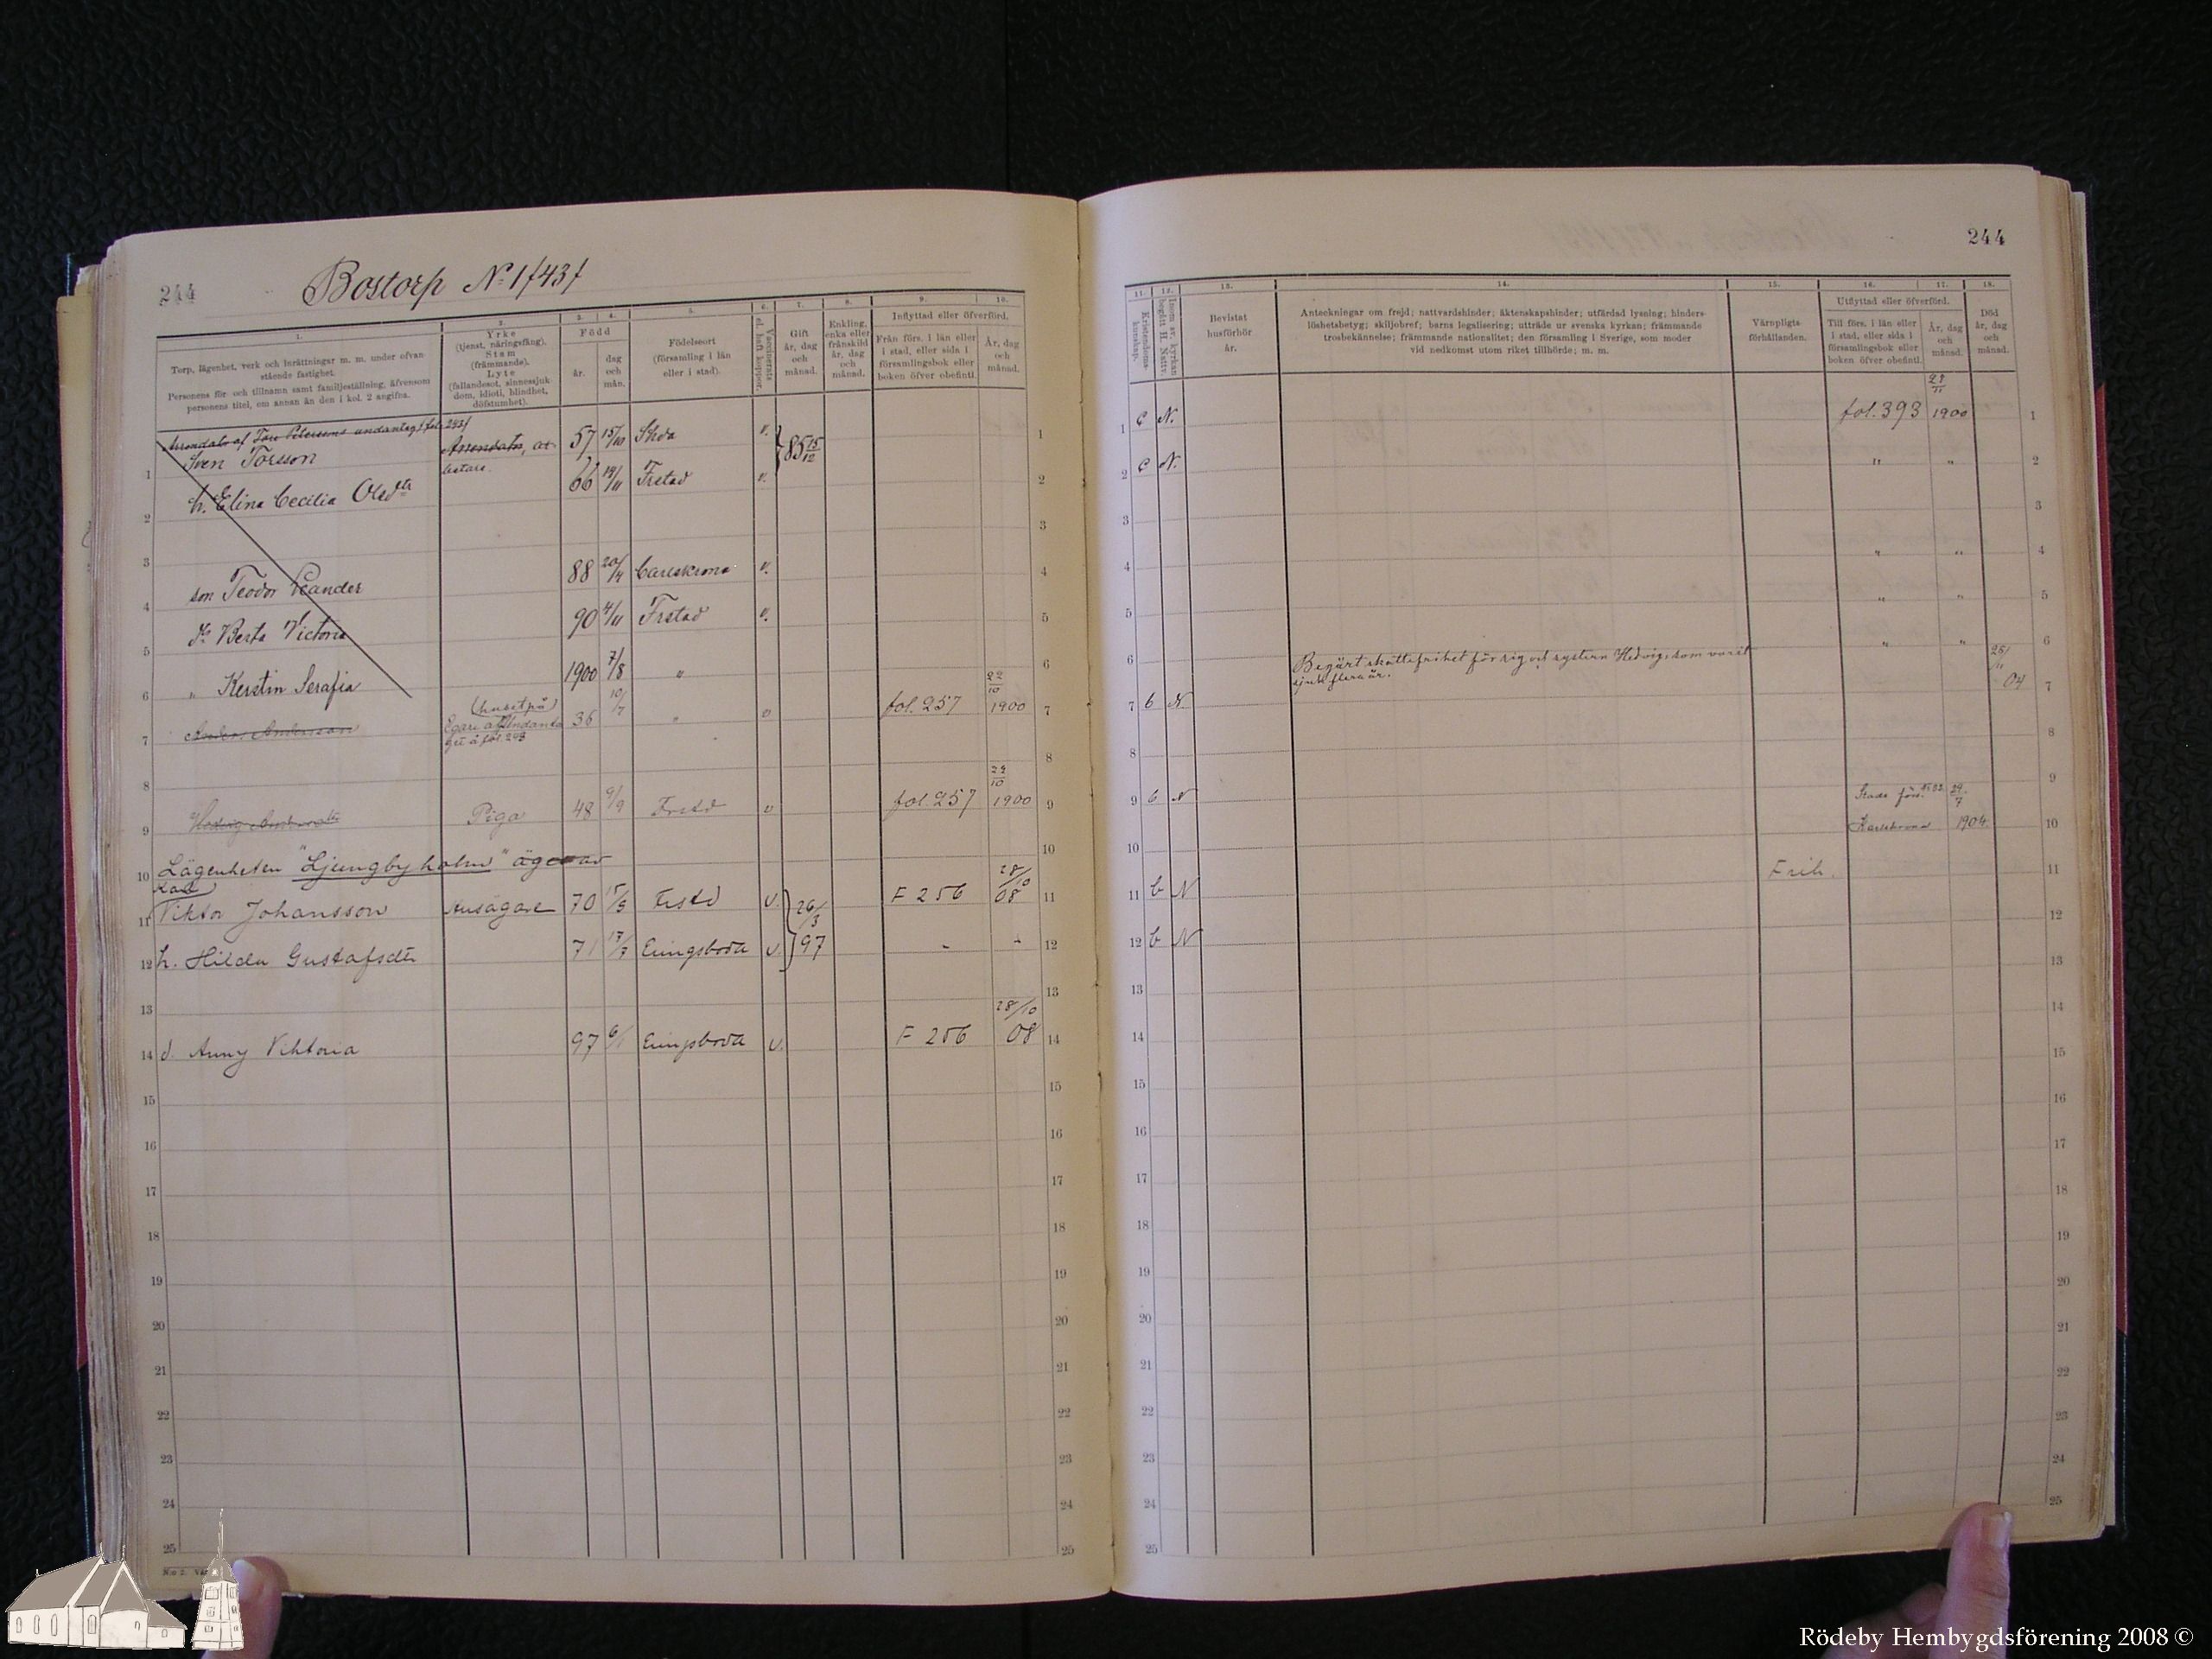 244
Bostorp No 1 /43/
244
1. 2. 3. 4. 5. 6. 7. 8. 9. 10.
Torp, lägenhet, verk och inrättningar m. m. under ofvanstående fastighet.
Personens för- och tillnamn samt familjeställning, äfvensom personens titel, om annan än den i kol. 2 angifna.
Yrke
(tjenst, näringsfång).
Stam
(främmande).
Lyte
(fallandesot, sinnessjukdom, idioti, blindhet, döfstumhet).
Född
år.
dag och mån.
Födelseort
(församling i län eller i stad).
Vaccinerats el. haft koppor.
Gift
år, dag och månad.
Enkling, enka eller frånskild år, dag och månad.
Inflyttad eller öfverförd.
Från förs. i län eller i stad, eller sida i församlingsbok eller boken öfver obefintl.
År, dag och månad.
11. 12. 13. 14. 15. 16. 17. 18.
Kristendomskunskap.
Inom sv. kyrkan begått H. Nattv.
Bevistat husförhör år.
Anteckningar om frejd; nattvardshinder; äktenskapshinder; utfärdad lysning; hinderslöshetsbetyg; skiljobref; barns legalisering; utträde ur svenska kyrkan; främmande trosbekännelse; främmande nationalitet; den församling i Sverige, som moder vid nedkomst utom riket tillhörde; m. m.
Värnpligtsförhållanden.
Utflyttad eller öfverförd.
Till förs. i län eller i stad, eller sida i församlingsbok eller boken öfver obefintl.
År, dag och månad.
Död
år, dag och månad.
Arrendats af Ture Petersons undantag (fol. 243)
1 Sven Torsson Arrendator, arbetare 57 15/10 v. 85 15/12 1 C N. fol. 393 1900 1
2 h. Elina Cecilia Olsdtr 66 19/11 Frstad v. 2 C N. " " 2
3
4 son Teodor Leander 88 20/4 Carlskrona v. 4 " " 4
5 dr Berta Victoria 90 4/11 Frstad v. 5 " " 5
6 " Kerstin Serafia 1900 7/8 " 6 " " 6
Begärt skattefrihet för sig och systern Hedvig, som varit sjuk flera år.
7 Anders Andersson (huset på) Egare af Undantaget å fol. 243 36 10/7 " v fol. 257 22/10 1900 7 b N. 25/11 04 7
8
9 Piga 48 9/9 Frstd v fol. 257 1900 9 b N Stads förs. 29/7
Karlskrona 1904
10 Lägenheten "Ljungbyholm" äges av
11 Viktor Johansson Husägare 70 15/5 Frstd v. 26/3 97 F 256 28/10 08 11 b N Frik. 11
12 h. Hilda Gustafsdtr 71 17/7 Eringsboda v. - - 12 b N 12
13
14 d. Anny Viktoria 97 6/1 Eringsboda v. F 256 28/10 08 14
15
16
17
18
19
20
21
22
23
24
25
Rödeby Hembygdsförening 2008 ©